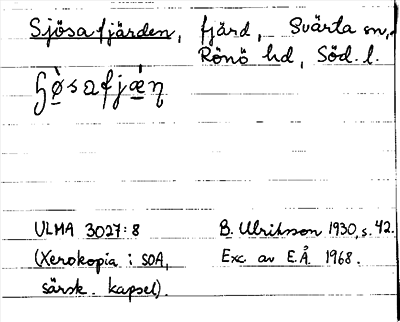 Sjösafjärden, fjärd, Svärta sn,
Rönö hd, Söd. l.
ɧø̀safjæ̀ɳ
ULMA 3027:8 B. Ulriksson 1930, s. 42.
(Xerokopia i SOA, Exc. av E.Å. 1968.
särsk. kapsel).